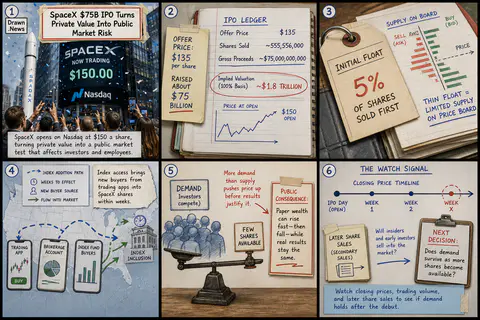 1
Drawn
.News
SpaceX $75B IPO Turns
Private Value Into Public
Market Risk
SPACEX
NOW TRADING
$150.00
Nasdaq
SpaceX opens on Nasdaq at $150 a share,
turning private value into a public
market test that affects investors and employees.
2
OFFER
PRICE:
$135
per
share
RAISED
ABOUT
$75
BILLION
IPO LEDGER
Offer Price $135
Shares Sold ~555,556,000
Gross Proceeds ~$75,000,000,000
Implied Valuation
(100% Basis) ~$1.8 TRILLION
PRICE AT OPEN
$150
OPEN
3
INITIAL FLOAT
5%
OF SHARES
SOLD FIRST
SUPPLY ON BOARD
SELL
(ASK)
BUY
(BID)
PRICE
THIN FLOAT =
LIMITED SUPPLY
ON PRICE BOARD
4
INDEX ADDITION PATH
WEEKS TO EFFECT
NEW BUYER SOURCE
FLOW INTO MARKET
Index access brings
new buyers from
trading apps into
SpaceX shares
within weeks.
TRADING
APP
BUY
BROKERAGE
ACCOUNT
INDEX FUND
BUYERS
INDEX
INCLUSION
5
DEMAND
(Investors
compete)
More demand
than supply
pushes price up
before results
justify it.
FEW
SHARES
AVAILABLE
PUBLIC
CONSEQUENCE
Paper wealth can
rise fast—then
fall—while
real results
stay the
same.
6
THE WATCH SIGNAL
CLOSING PRICE TIMELINE
IPO DAY
(OPEN)
WEEK
1
WEEK
2
WEEK
X
LATER SHARE
SALES
(SECONDARY
SALES)
Will insiders
and early investors
sell into the
market?
NEXT
DECISION:
Does demand
survive as more
shares become
available?
Watch closing prices, trading volume,
and later share sales to see if demand
holds after the debut.